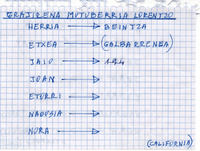 GRAZIRENA MOTUBERRIA LORENTZO
HERRIA → BEINTZA
ETXEA → (GALBARRENEA)
JAIO → 194
JOAN →
ETORRI →
NAGUSIA →
NORA →
(CALIFORNIA)